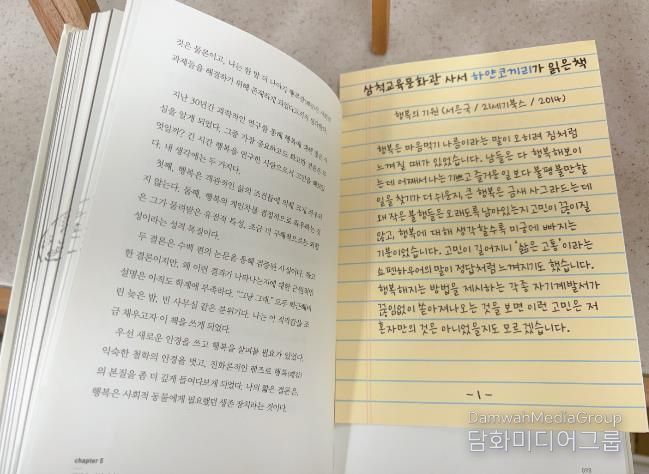 것은 물론이고, 나는 한 발 더 나아가
과제들을 해결하기 위해
지난 30년간 과학적인 연구를 통해 행복에 대한 많은 사
실을 알게 되었다. 그중 가장 중요하고도 확고한 결론은 무
엇일까? 긴 시간 행복을 연구한 사람으로서 고민을 해보았
다. 내 생각에는 두 가지다.
첫째, 행복은 객관적인 삶의 조건들에 의해 크게 좌우되
지 않는다. 둘째, 행복의 개인차를 결정적으로 좌우하는 것
은 그가 물려받은 유전적 특성, 조금 더 구체적으로는 외향
성이라는 성격 특질이다.
두 결론은 수백 편의 논문을 통해 검증된 사실이다. 확고
한 결론이지만, 왜 이런 결과가 나타나는지에 대한 근원적인
설명은 아직도 학계에 부족하다. "그냥 그래." 모두 퇴근해버
린 늦은 밤, 빈 사무실 같은 분위기다. 나는 이 적적함을 조
금 채우고자 이 책을 쓰게 되었다.
우선 새로운 안경을 쓰고 행복을 살펴볼 필요가 있었다.
익숙한 철학의 안경을 벗고, 진화론적인 렌즈로 행복(쾌감)
의 본질을 좀 더 깊게 들여다보게 되었다. 나의 짧은 결론은,
행복은 사회적 동물에게 필요했던 생존 장치라는 것이다.
chapter 5
삼척교육문화관 사서 하얀코끼리가 읽은책
행복의 기원 (서은국 / 21세기북스 / 2014)
행복은 마음먹기 나름이라는 말이 오히려 짐처럼
느껴질 때가 있었습니다. 남들은 다 행복해보이
는데 어째서 나는 기쁘고 즐거운 일보다 불평불만할
일을 찾기가 더 쉬운지, 큰 행복은 금새 사그라드는데
왜 작은 불행들은 오래도록 남아있는지 고민이 끊이질
않고, 행복에 대해 생각할수록 미궁에 빠지는
기분이었습니다. 고민이 길어지니 '삶은 고통'이라는
쇼펜하우어의 말이 정답처럼 느껴지기도 했습니다.
행복해지는 방법을 제시하는 각종 자기계발서가
끊임없이 쏟아져나오는 것을 보면 이런 고민은 저
혼자만의 것은 아니었을지도 모르겠습니다.
-1-
DamwhaMediaGroup
담화미디어그룹
093